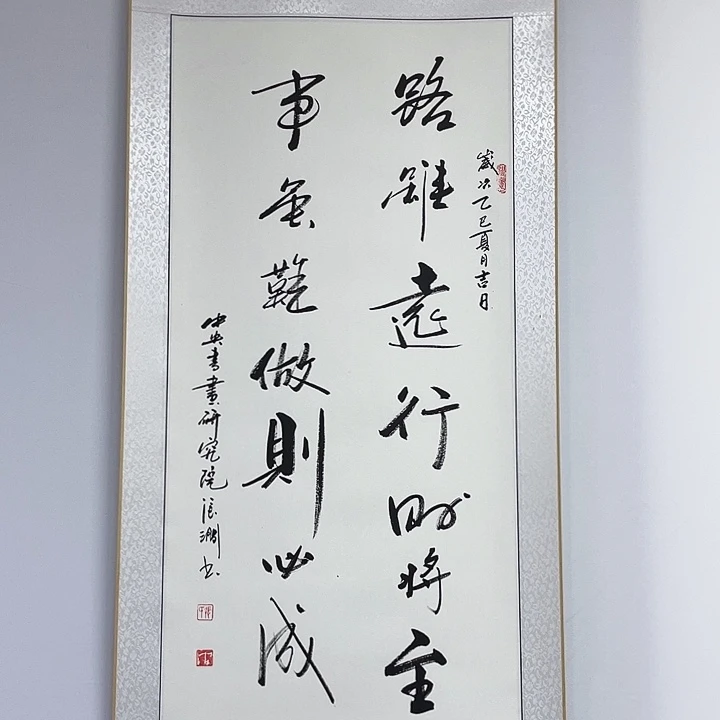 路雖遠行則將至
歲次乙巳夏日吉日
事虽難做則必成
中央書畫研究院 書